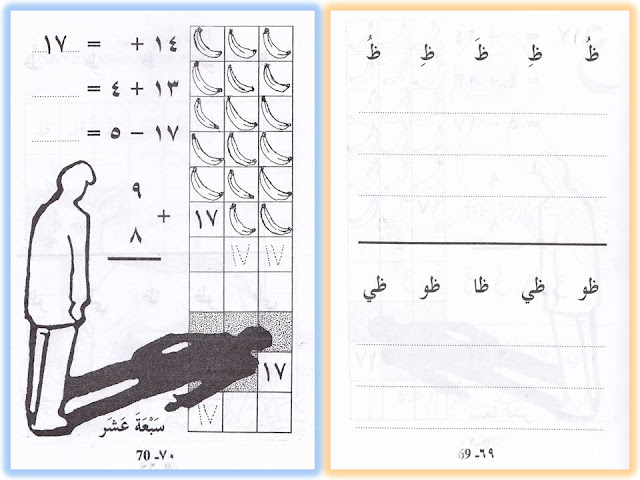 ظُ ظِ ظَ ظِ ظُ
ظو ظي ظا ظو ظي
٦٩ـ 69
١٤ + = ١٧
١٣ + ٤ =
١٧ − ٥ =
٩
+
٨
١٧
١٧ ١٧
١٧
١٧
سَبْعَةَ عَشَر
٧٠ـ 70